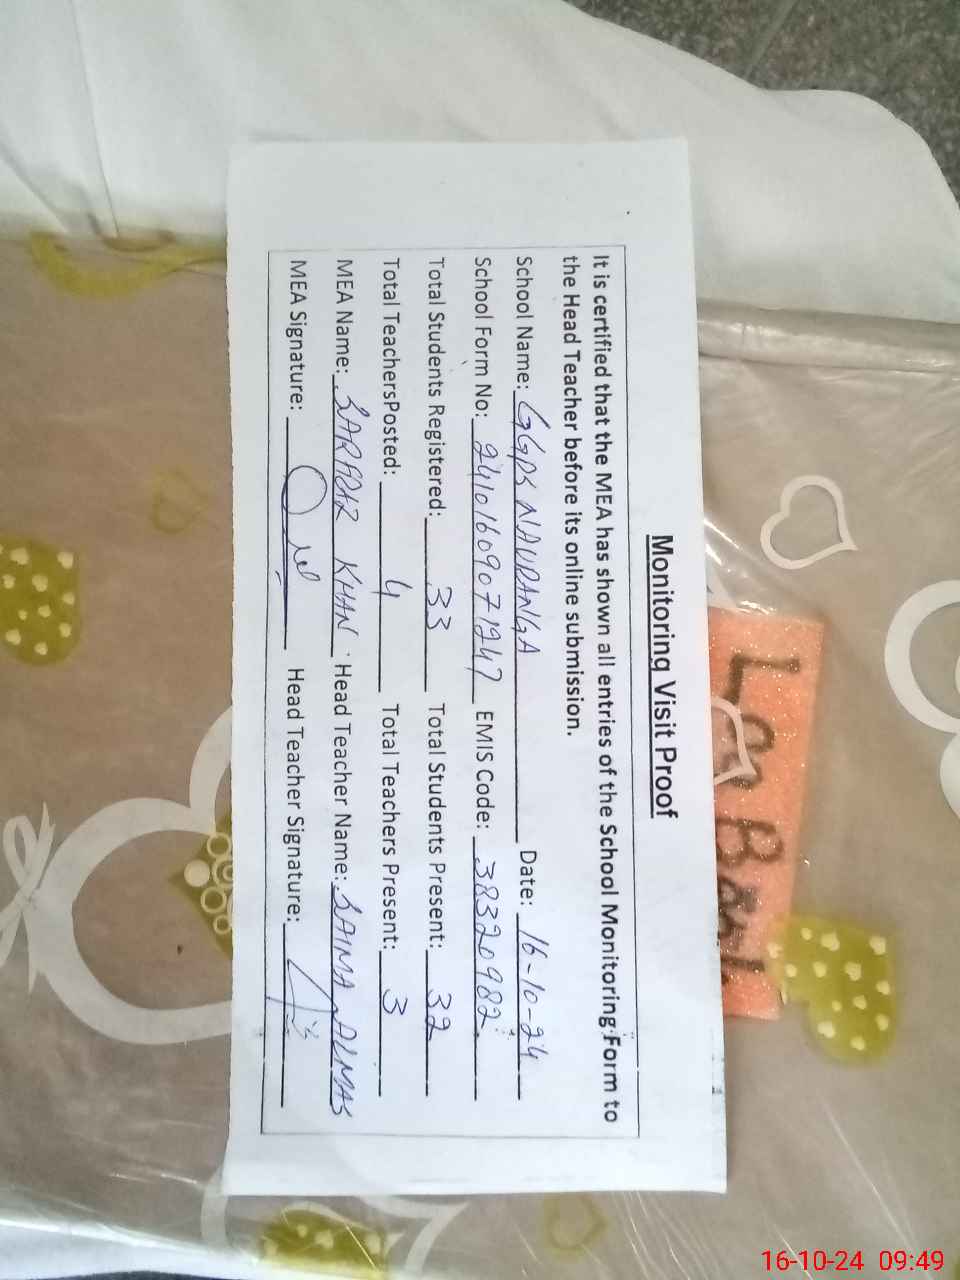 Monitoring Visit Proof
It is certified that the MEA has shown all entries of the School Monitoring Form to
the Head Teacher before its online submission.
School Name: GGPS NAURANGA Date: 16-10-24
School Form No: 24101609071247 EMIS Code: 38320982
Total Students Registered: 33 Total Students Present: 32
Total TeachersPosted: 4 Total Teachers Present: 3
MEA Name: SARFRAZ KHAN Head Teacher Name: SAIMA ALMAS
MEA Signature: Head Teacher Signature:
Log Book
16-10-24 09:49